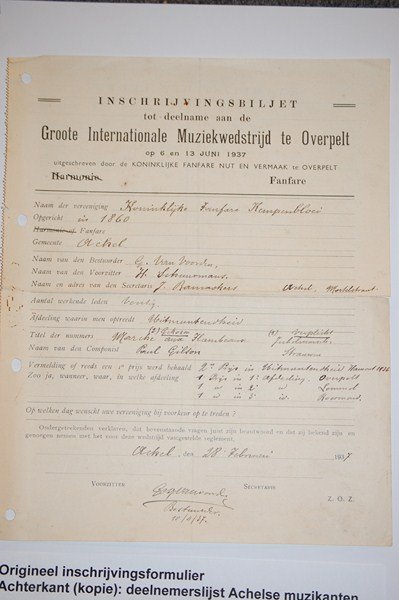 INSCHRIJVINGSBILJET
tot deelname aan de
Groote Internationale Muziekwedstrijd te Overpelt
op 6 en 13 JUNI 1937
uitgeschreven door de KONINKLIJKE FANFARE NUT EN VERMAAK te OVERPELT
Harmonie. Fanfare
Naam der vereeniging Koninklijke Fanfare Kempenbloei
Opgericht in 1860
Harmonie of Fanfare
Gemeente Achel
Naam van den Bestuurder G. Van Voorden
Naam van den Voorzitter H. Scheurmans.
Naam en adres van den Secretaris J. Ramaekers Achel,
Aantal werkende leden Veertig
Afdeeling waarin men optreedt Uitmuntendheid
(2) Gekozen (1) Verplicht
Titel der nummers Marche aux Flambeaux
Naam van den Componist Paul Gilson Strauwen
Vermelding of reeds een 1e prijs werd behaald 2e Prijs in Uitmuntendheid Hamont 1936
Zoo ja, wanneer, waar, in welke afdeeling 1 Prijs in 1e Afdeeling. Overpelt
1 " in 2e " Lommel
1 " in 3e " Roermond.
Op welken dag wenscht uwe vereeniging bij voorkeur op te treden ?
Ondergeteekenden verklaren, dat bovenstaande vragen juist zijn beantwoord en dat zij bekend zijn en
genoegen nemen met het voor deze wedstrijd vastgestelde reglement.
Achel, den 28 Februari 1937
VOORZITTER SECRETARIS
Z. O. Z.
Bestuurder
10/3/37.
Origineel inschrijvingsformulier
Achterkant (kopie): deelnemerslijst Achelse muzikanten